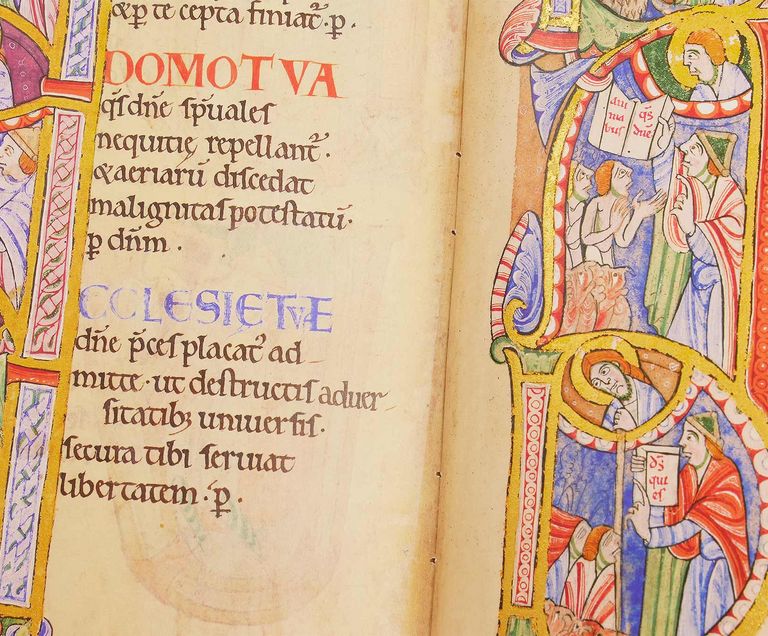 &ꝑ te cepta finiat᷑. ꝑ.
DOMO TVA
q̅s dn̅e sp̅uales
nequitię repellant᷑.
&aeriarū discedat
malignitas potestatū.
ꝑ dn̅m.
ECCLESIĘ TVÆ
dn̅e p̅ces placat᷑ ad
mitte. ut destructis aduer
sitatibꝫ uniuersis.
secura tibi seruiat
libertatem. ꝑ.
q̅s
bus dn̅e
d̅s
qui
es